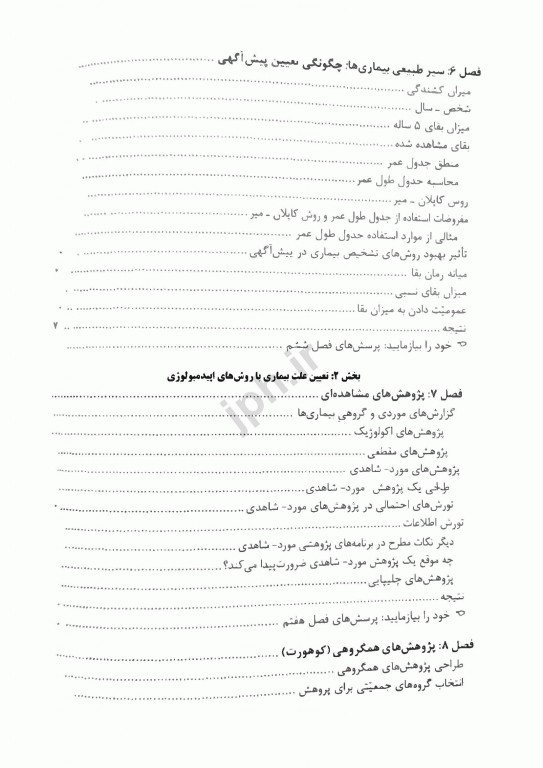 فصل ۶: سیر طبیعی بیماری‌ها: چگونگی تعیین پیش‌آگهی
میزان کشندگی
شخص ـ سال
میزان بقای ۵ ساله
بقای مشاهده شده
منطق جدول عمر
محاسبه جدول طول عمر
روش کاپلان ـ میر
مفروضات استفاده از جدول طول عمر و روش کاپلان ـ میر
مثالی از موارد استفاده جدول طول عمر
تأثیر بهبود روش‌های تشخیص بیماری در پیش‌آگهی
میانه زمان بقا
میزان بقای نسبی
عمومیّت دادن به میزان بقا
نتیجه ۷
خود را بیازمایید: پرسش‌های فصل ششم
بخش ۲: تعیین علت بیماری با روش‌های اپیدمیولوژی
فصل ۷: پژوهش‌های مشاهده‌ای
گزارش‌های موردی و گروهیِ بیماری‌ها
پژوهش‌های اکولوژیک
پژوهش‌های مقطعی
پژوهش‌های مورد- شاهدی
طراحی یک پژوهش مورد- شاهدی
تورش‌های احتمالی در پژوهش‌های مورد- شاهدی
تورش اطلاعات
دیگر نکات مطرح در برنامه‌های پژوهشی مورد- شاهدی
چه موقع یک پژوهش مورد- شاهدی ضرورت‌پیدا می‌کند؟
پژوهش‌های چلیپایی
نتیجه
خود را بیازمایید: پرسش‌های فصل هفتم
فصل ۸: پژوهش‌های همگروهی (کوهورت)
طراحی پژوهش‌های همگروهی
انتخاب گروه‌های جمعیّتی برای پژوهش
jph.ir